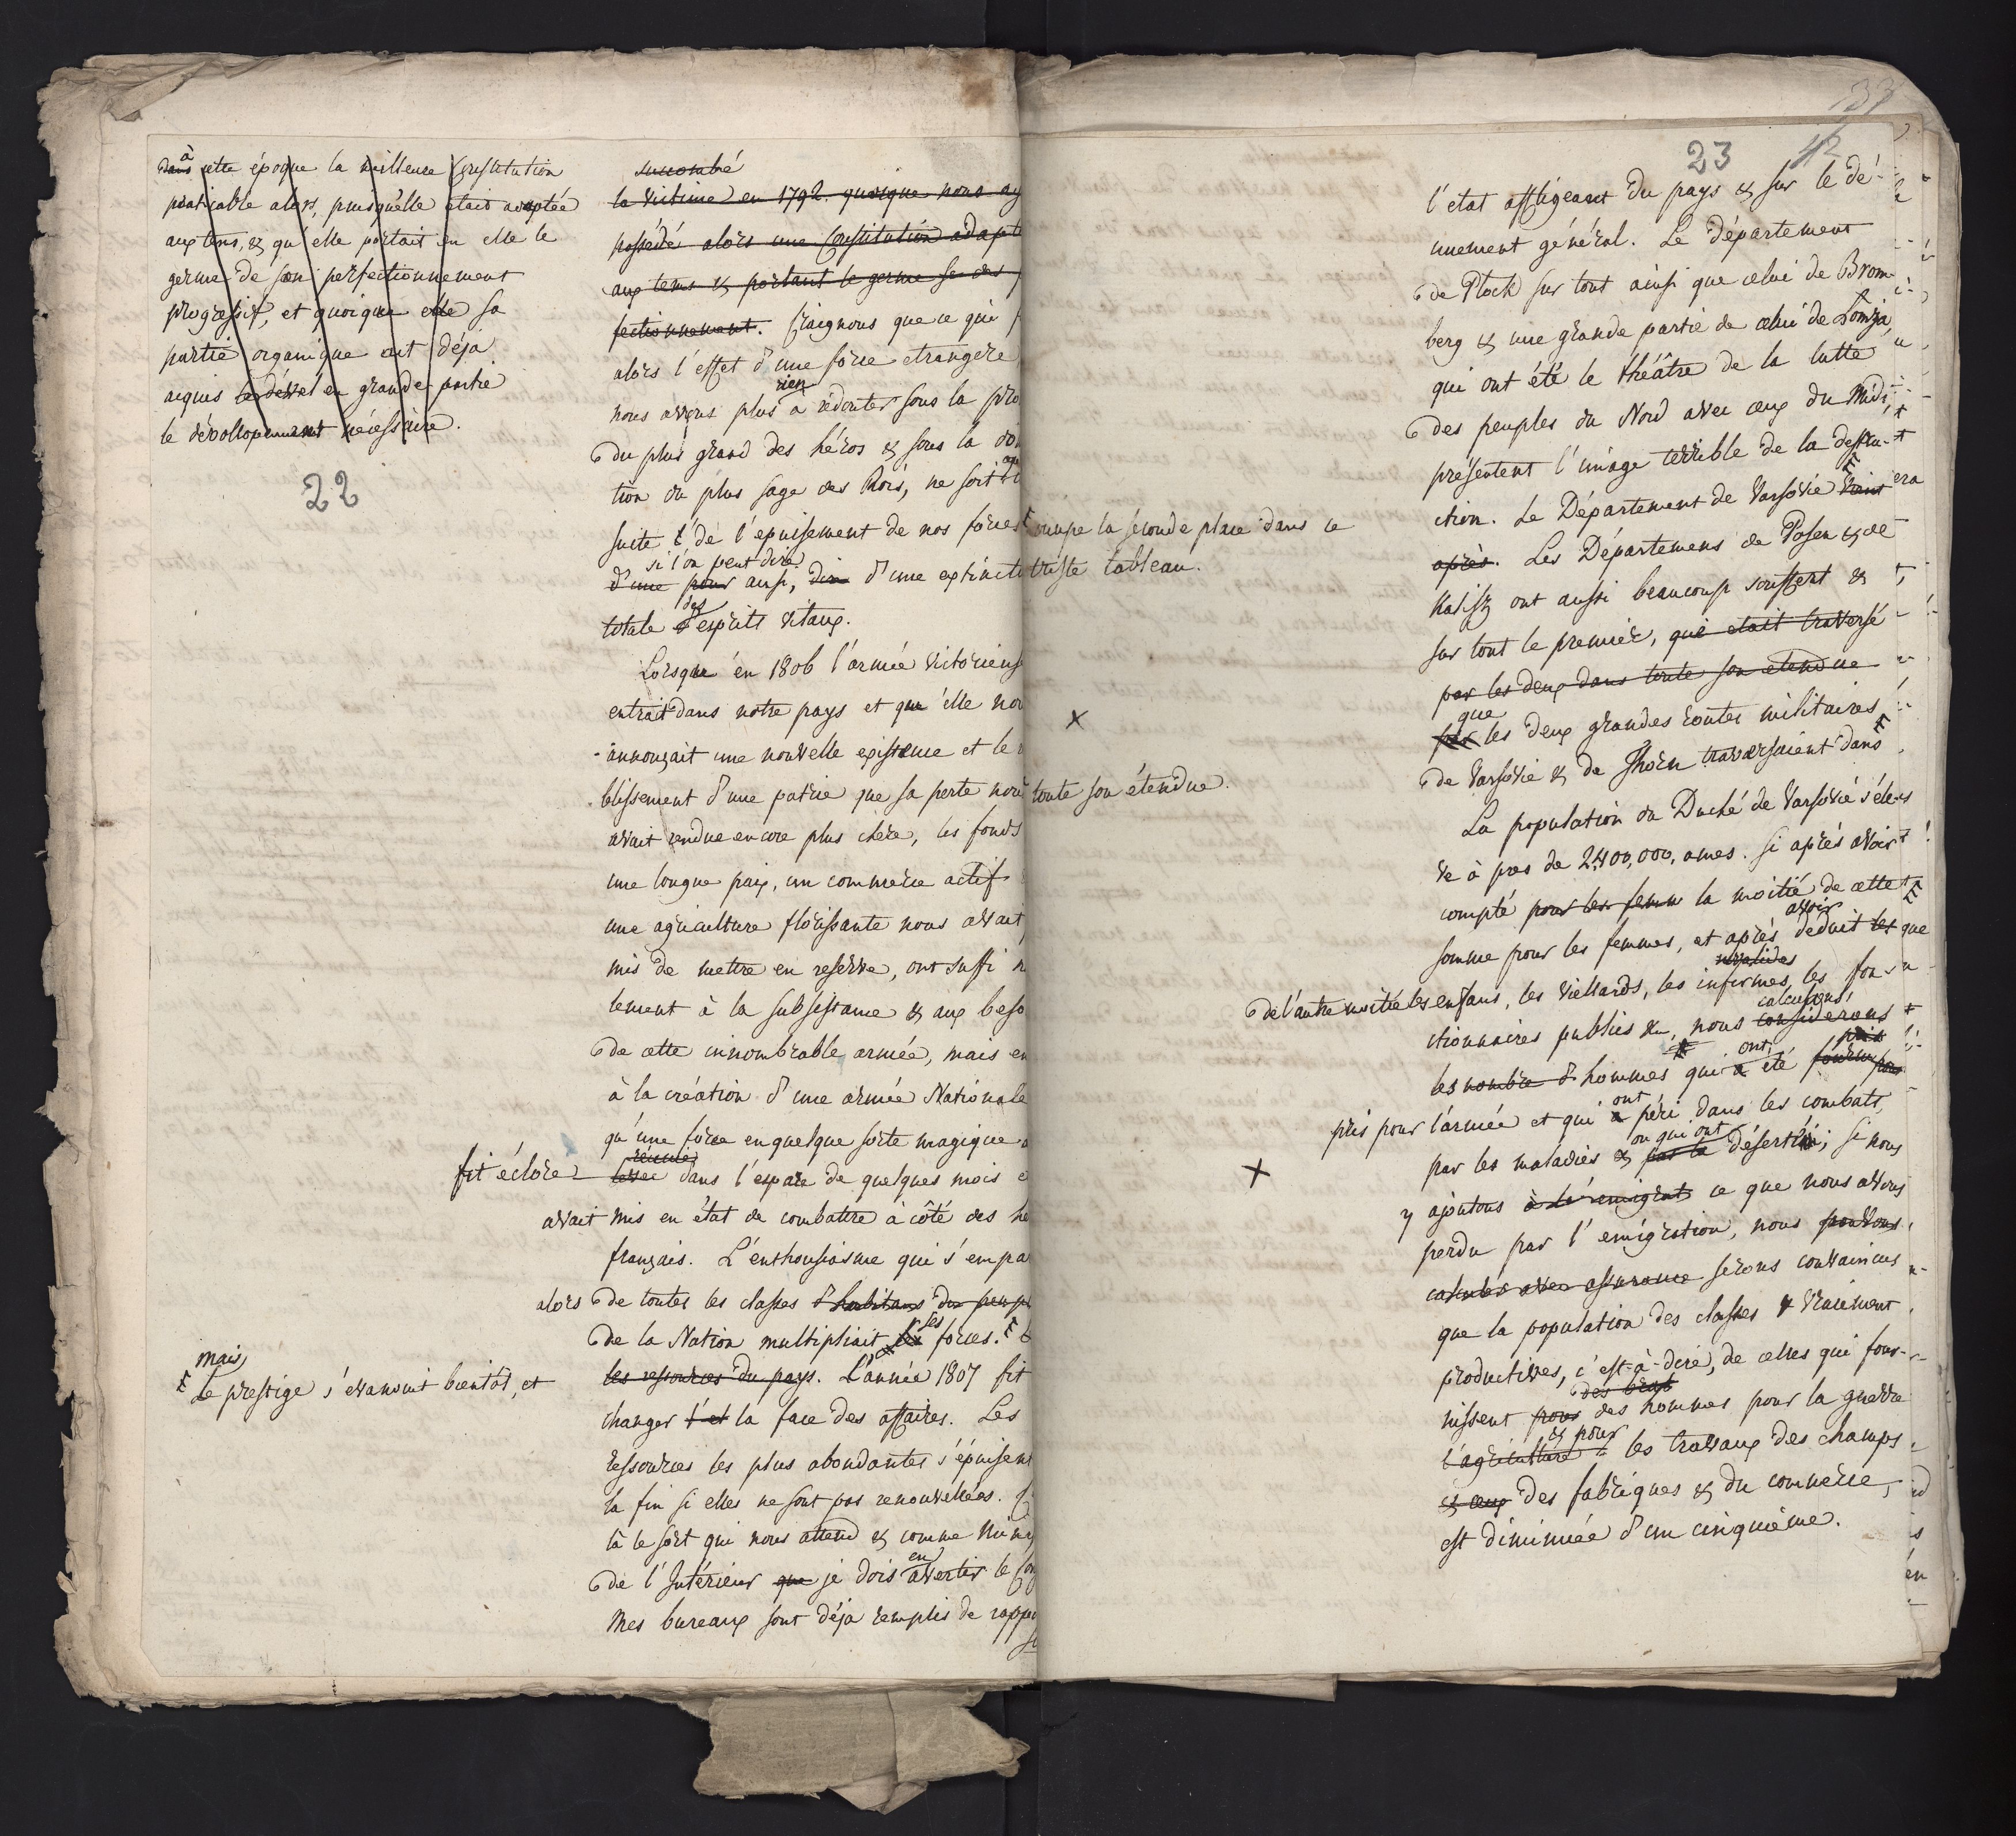 à
dans cette époque la meilleure Constitution
praticable alors, puisqu'elle était adaptée
aux tems, & qu'elle portait en elle le
germe de son perfectionnement
progressif, et quoique elle sa
partie organique ait déja
acquis en grande partie
le dévellopement nécéssaire.
22
succombé
la victime en 1792. quoique nous ay
possédé alors une Constitution adapté
aux tems & portant le germe de
fectionnement. Craignons que ce qui f
alors l'effet d'une force etrangère
rien
nous avons plus à rédouter sous la pro
du plus grand des héros & sous la do
tion du plus sage des Rois, ne soit
suite de l'epuisement de nos forces
si l'on peut dire
d'une pour ainsi, dire d'une extincti
des
totale d'esprits vitaux.
Lorsque en 1806 l'armée victorieuse
entrait dans notre pays et qu'elle nou
annonçait une nouvelle existence et le r
blissement d'une patrie que sa perte nou
avait rendue encore plus chère, les fonds
une longue paix, un commerce actif
une agriculture florissante nous avait
mis de mettre en reserve, ont suffi n
lement à la subsistance & aux beso
de cette innombrable armée, mais en
à la création d'une armée Nationale
qu'une force en quelque sorte magique a
réunie
fit éclore levée dans l'espace de quelques mois e
avait mis en état de combattre à côté des hé
français. L'enthousiasme qui s'empa
alors de toutes les classes d'habitans du peupl
ses
de la Nation multipliait les forces. &
mais
Le prestige s'évanouit bientôt, et
les ressources du pays. L'année 1807 fit
changer l'et la face des affaires. Les
ressources les plus abondantes s'épuisent
la fin si elles ne sont pas renouvellées.
là le sort qui nous attend & comme Minis
en
de l'Intérieur que je dois avertir le Con
Mes bureaux sont déja remplis de rappo
su
23
42
l'etat affligeant du pays & sur le dé-
nuement général. Le département
de Plock sur tout ainsi que celui de Brom-
berg & une grande partie de celui de Łomża,
qui ont été le théâtre de la lutte
des peuples du Nord avec ceux du Midi,
présentent l'image terrible de la destru-
ction. Le Département de Varsovie vient
occupe la seconde place dans ce
triste tableau.
après. Les Départemens de Posen & de
Kalisz ont aussi beaucoup souffert &
sur tout le premier, qui etait traversé
par les deux dans toute son etendue
que
par les deux grandes routes militaires
de Varsovie & de Thorn traversaient dans
toute son étendue.
La population du Duché de Varsovie s'éle-
ve à pres de 2,400,000, ames. Si après avoir
compté pour les femm la moitié de cette
avoir
somme pour les femmes, et après déduit les
invalides
de l'autre moitié les enfans, les viellards, les infirmes, les fon-
calculons,
ctionnaires publics &c, nous considerons
ont
les nombre d'hommes qui a été fourni pour
ont
pris pour l'armée et qui a péri dans les combats,
ou qui ont
par les maladies & par la déserté; si nous
y ajoutons à de l'emigrat ce que nous avons
perdu par l'emigration, nous pouvons
calculer avec assurance serons convaincus
que la population des classes vraiement
productives, c'est-à-dire, de celles qui four-
des bras
nissent pour des hommes pour la guerre
& pour
l'agriculture les travaux des champs
& ceux des fabriques & du commerce,
est diminuée d'un cinquième.